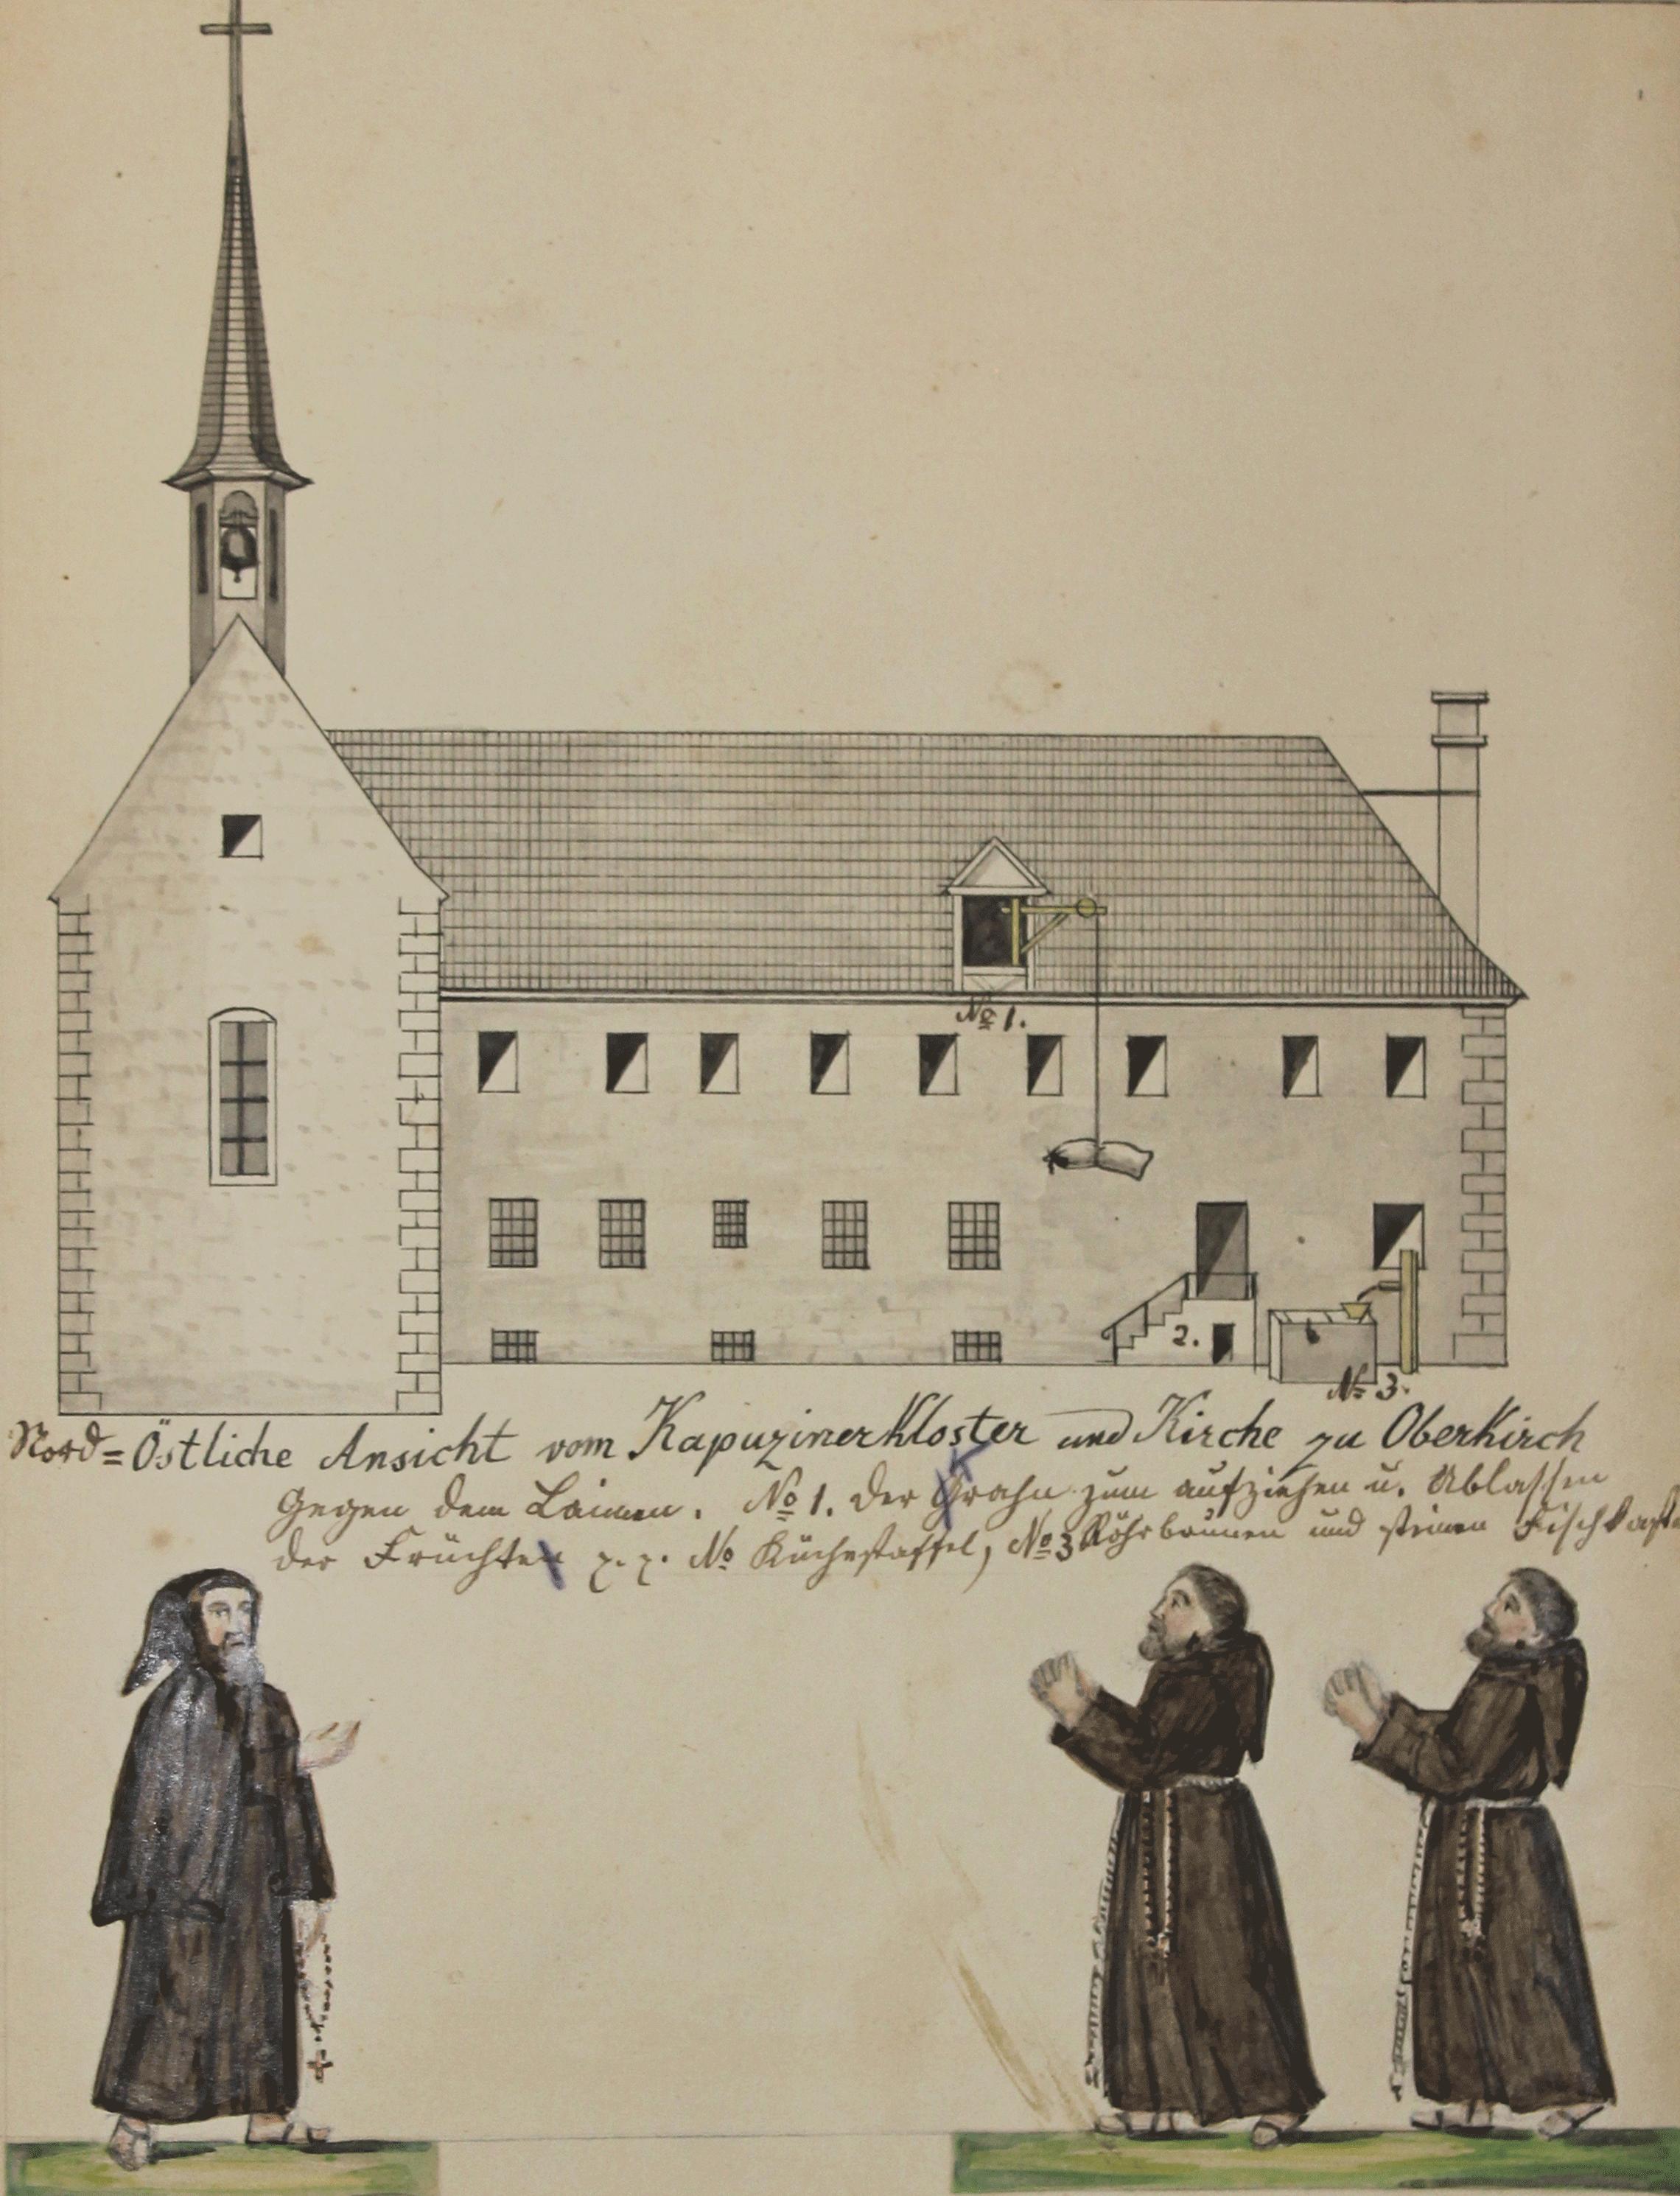 No 1.
2.
No 3.
Nord=Östliche Ansicht vom Kapuzinerkloster und Kirche zu Oberkirch
Gegen dem Laimen. No 1. der Krahn zum aufziehen u. Ablassen
der Früchte z. z. No Küchestaffel, No 3 Röhrbrunnen und steinen Fischkaste